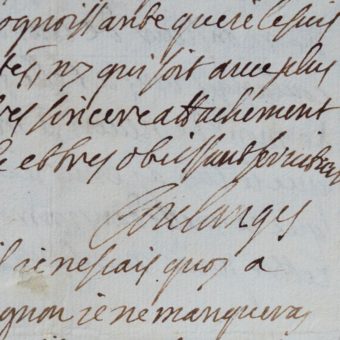 ognoissante que ie le suis
tés, ny qui soit avec plus
tres sincere attachement
le et tres obeissant serviteur
Coulanges
il ie ne scais quoy a
gnon ie ne manqueray